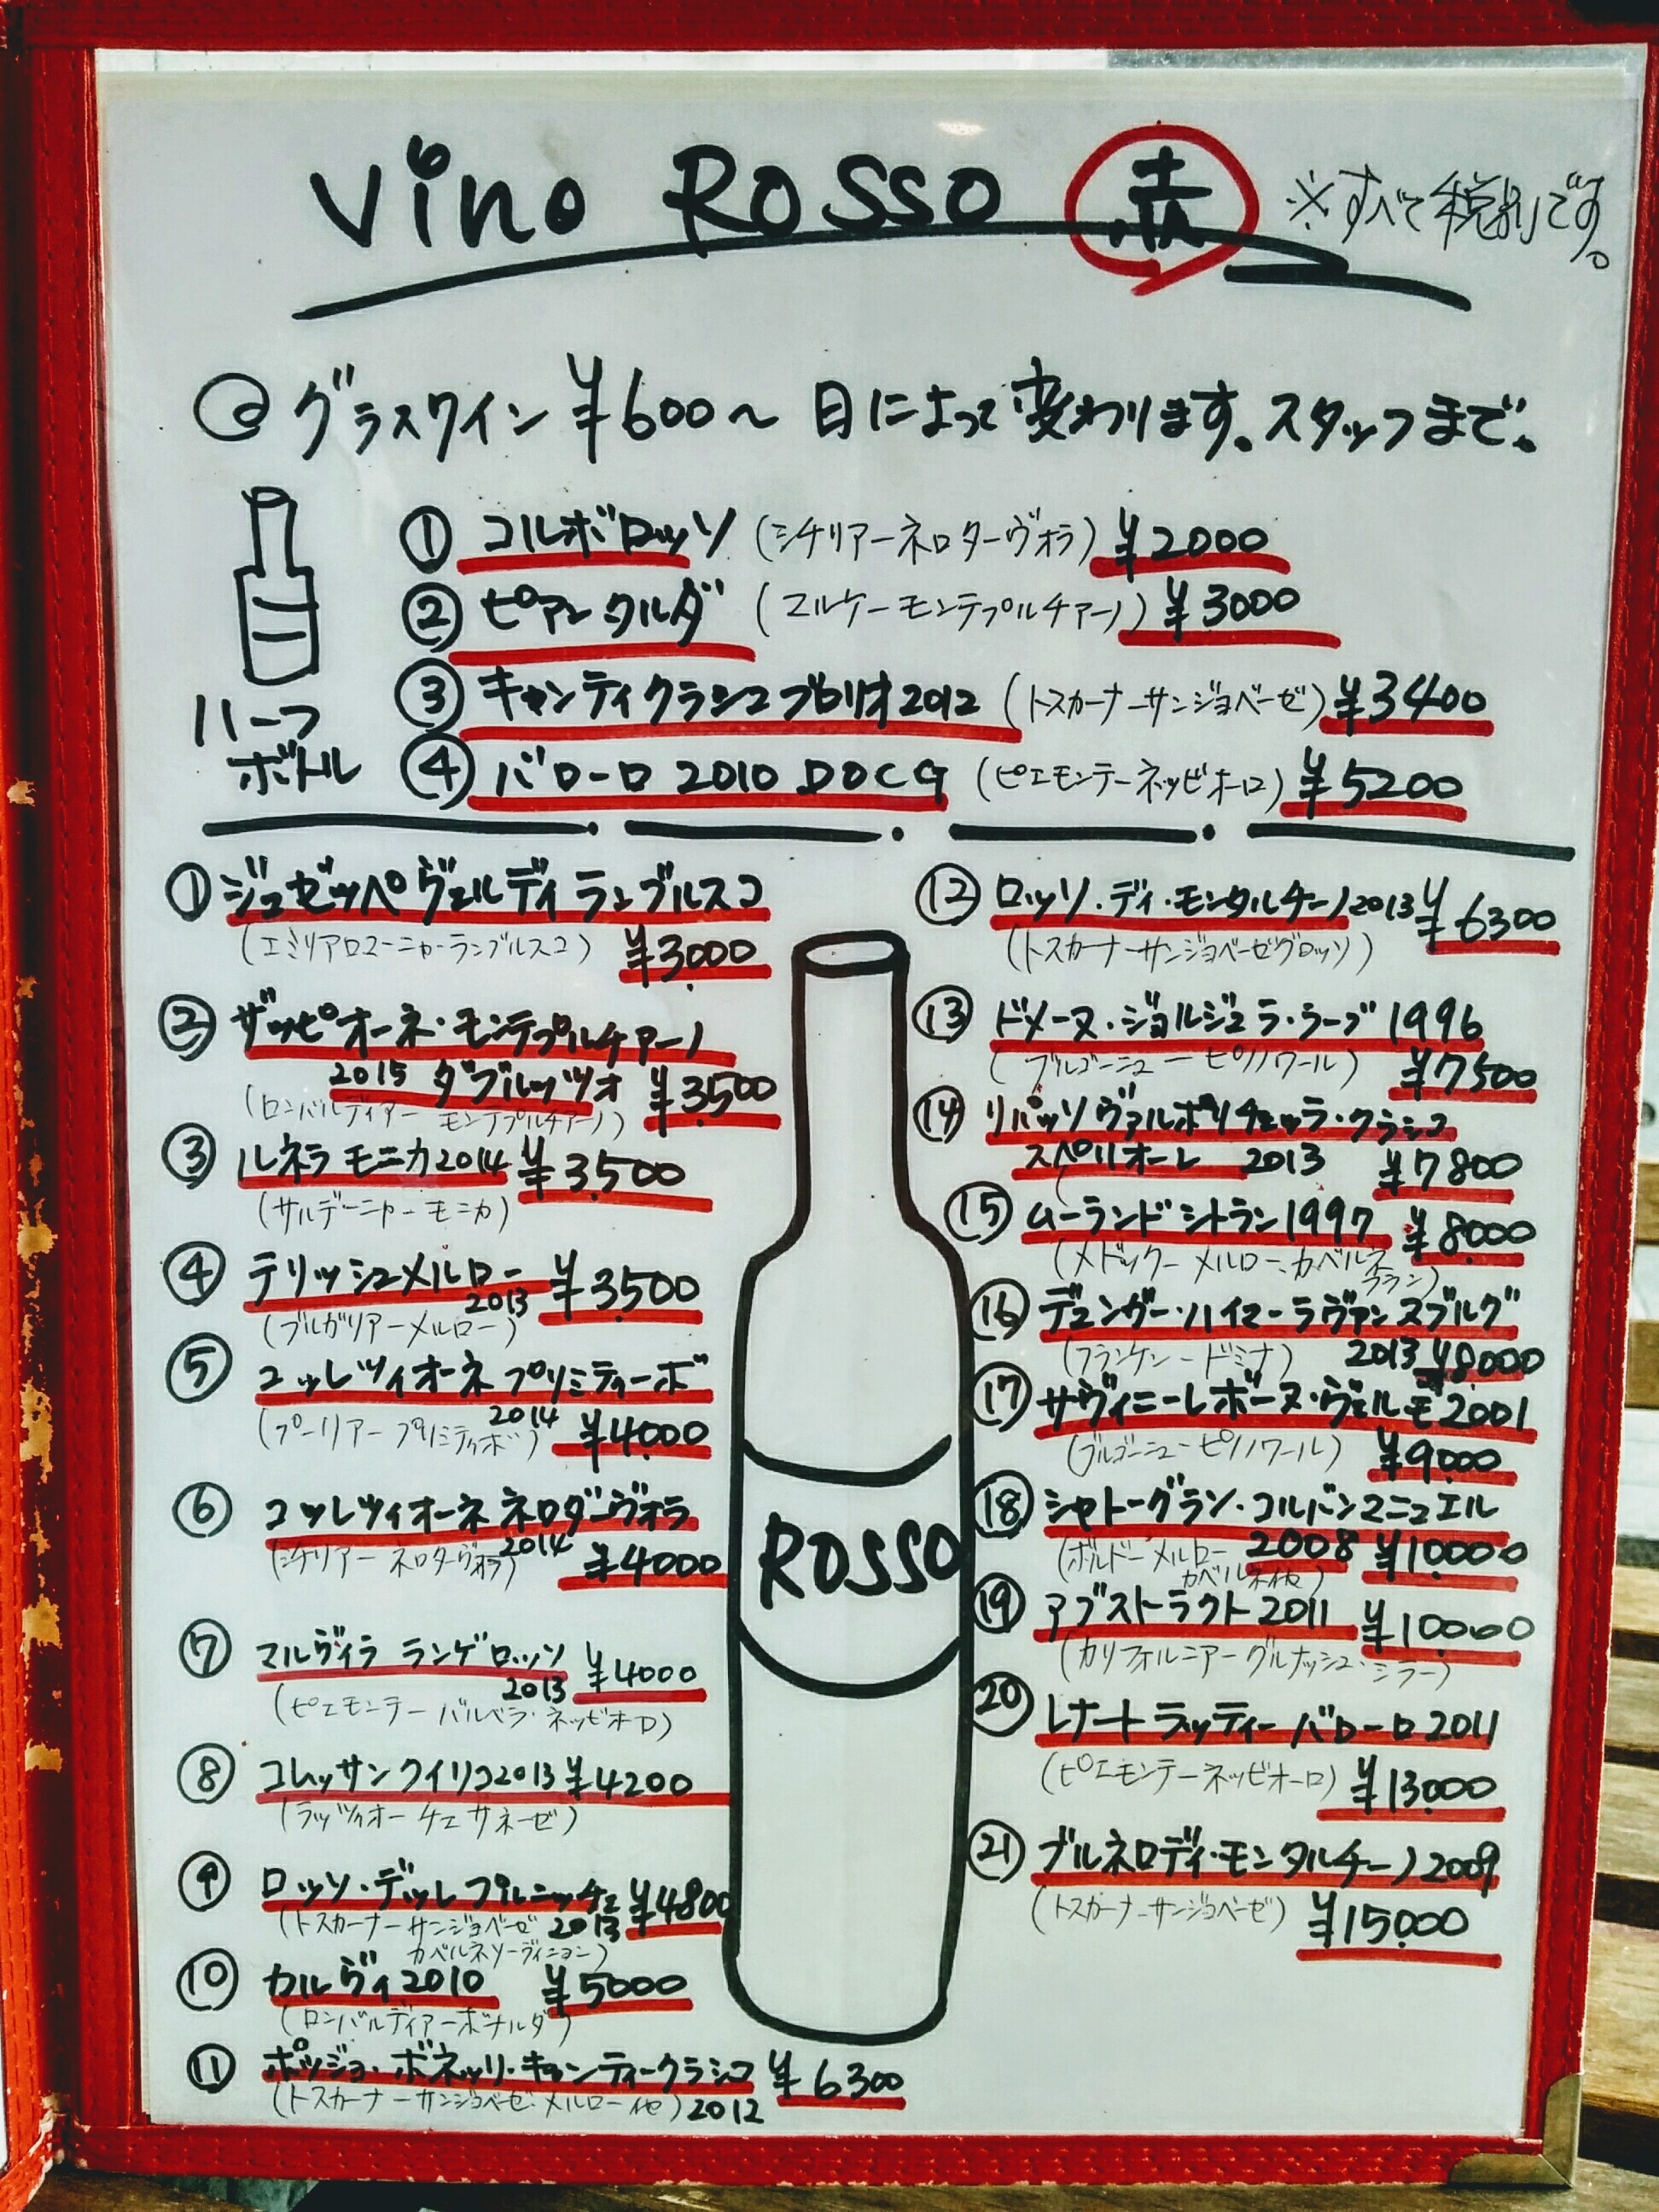 Vino ROSSO 赤 ※すべて税別です。
グラスワイン ¥600〜 日によって変わります。スタッフまで。
ハーフ
ボトル
① コルボロッソ (シチリアーネロターヴォラ) ¥2000
② ピアンクルダ (マルケーモンテプルチアーノ) ¥3000
③ キャンティクラシコブロリオ2012 (トスカーナーサンジョベーゼ) ¥3400
④ バローロ 2010 DOCG (ピエモンテーネッビオーロ) ¥5200
① ジュゼッペヴェルディランブルスコ
(エミリアロマーニャ・ランブルスコ) ¥3000
② ザッピオーネ・モンテプルチアーノ
2015 ダブルッツオ ¥3500
(ロンバルディアー モンテプルチアーノ)
③ ルネラ モニカ2014 ¥3500
(サルデーニャーモニカ)
④ テリッシュメルロー 2013 ¥3500
(ブルガリアーメルロー)
⑤ コッレツィオーネ プリミティーボ
(プーリアープリミティボ) 2014 ¥4000
⑥ コッレツィオーネ ネロダーヴォラ
(シチリアー ネロターヴォラ) 2014 ¥4000
⑦ マルヴィラ ランゲロッソ 2013 ¥4000
(ピエモンテー バルベラ・ネッビオーロ)
⑧ コレッサンクイリコ2013 ¥4200
(ラッツィオー チェサネーゼ)
⑨ ロッソ・デッレプルニッチェ 2013 ¥4800
(トスカーナーサンジョベーゼ
カベルネソーヴィニョン)
⑩ カルヴィ2010 ¥5000
(ロンバルディアーボナルダ)
⑪ ポッジョ・ボネッリ・キャンティークラシコ ¥6300
(トスカーナーサンジョベーゼ・メルロー他) 2012
ROSSO
⑫ ロッソ・ディ・モンタルチーノ2013 ¥6300
(トスカーナーサンジョベーゼグロッソ)
⑬ ドメーヌ・ジョルジュラ・ラーブ 1996
(ブルゴーニューピノノワール) ¥7500
⑭ リパッソヴァルポリチェッラ・クラシコ
スペリオーレ 2013 ¥7800
⑮ ムーランドシトラン1997 ¥8000
(メドックー メルロー、カベルネ
フラン)
⑯ デュンガーハイマーラヴァンスブルグ
(フランケンードミナ) 2013 ¥8000
⑰ サヴィニーレボーヌ・ヴェルモ2001
(ブルゴーニューピノノワール) ¥9000
⑱ シャトーグラン・コルバンマニュエル
(ボルドーメルロー 2008 ¥10000
カベルネ他)
⑲ アブストラクト2011 ¥10000
(カリフォルニアーグルナッシュ・シラー)
⑳ レナートラッティーバローロ2011
(ピエモンテーネッビオーロ) ¥13000
㉑ ブルネロディ・モンタルチーノ2009
(トスカーナーサンジョベーゼ) ¥15000